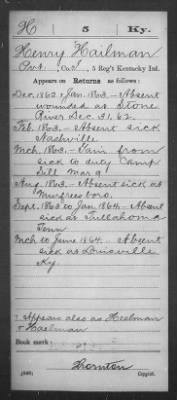 H 5 Ky.
Henry Hailman
Pvt., Co. I, 5 Reg't Kentucky Inf.
Appears on
Returns as follows:
Dec. 1862 & Jan. 1863.- Absent
wounded at Stone
River Dec. 31, 62.
Feb. 1863.- Absent sick
Nashville.
Mch. 1863. Gain from
sick to duty Camp
Dill Mar 9.
Aug. 1863.- Absent sick at
Murfreesboro.
Sept. 1863 to Jan. 1864.- Absent
sick at Tullahoma
Tenn
Mch. to June 1864.- Absent
sick at Louisville
Ky.
Appears also as Heelman
& Haelman
Book mark:
Thornton
Copyist.